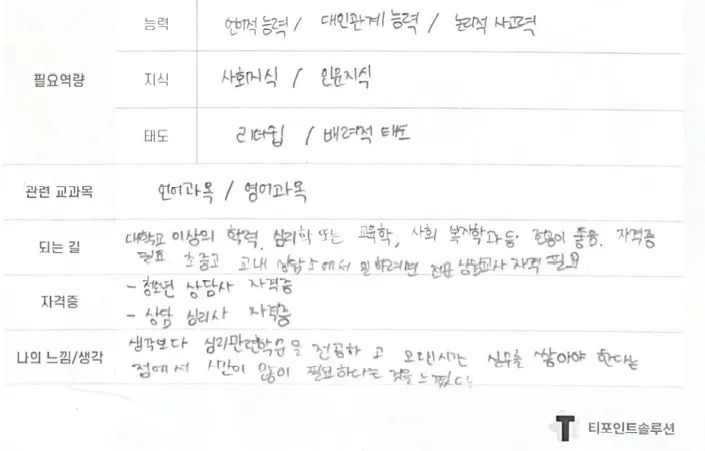 능력 언어적 능력 / 대인관계 능력 / 논리적 사고력
필요역량 지식 사회지식 / 인문지식
태도 리더쉽 / 배려적 태도
관련 교과목 언어과목 / 영어과목
되는 길 대학교 이상의 학력, 심리학 또는 교육학, 사회 복지학과 등 전공이 좋음. 자격증
필요 초중고 교내 상담소에서 일하려면 전문 상담교사 자격 필요
자격증 - 청소년 상담사 자격증
- 상담 심리사 자격증
나의 느낌/생각 생각보다 심리관련학을 전공하고 오랜시간 실무를 쌓아야 한다는
점에서 시간이 많이 필요하다는 것을 느꼈다.
T 티포인트솔루션